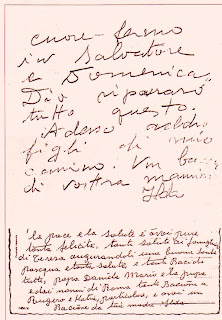 cuore-fermo
in Salvatore
e Domenica,
Dio riparerà
tutto questo.
Adesso
figli di mio
camino. Un
di vostra mamma
Ilda
la pace e la salute e avoi pure
tanta felicita, tanti saluti ai famigli
di Teresa augurandoli una buona Santa
pasqua e tanta salute, e tanti Bacioni
tutti, papa Daniele Mario e la pupa
e dai nonni di Roma tanti Bacioni a
Rugero e Katia, particolar, e avoi un
Bacione da tua madre Ilda